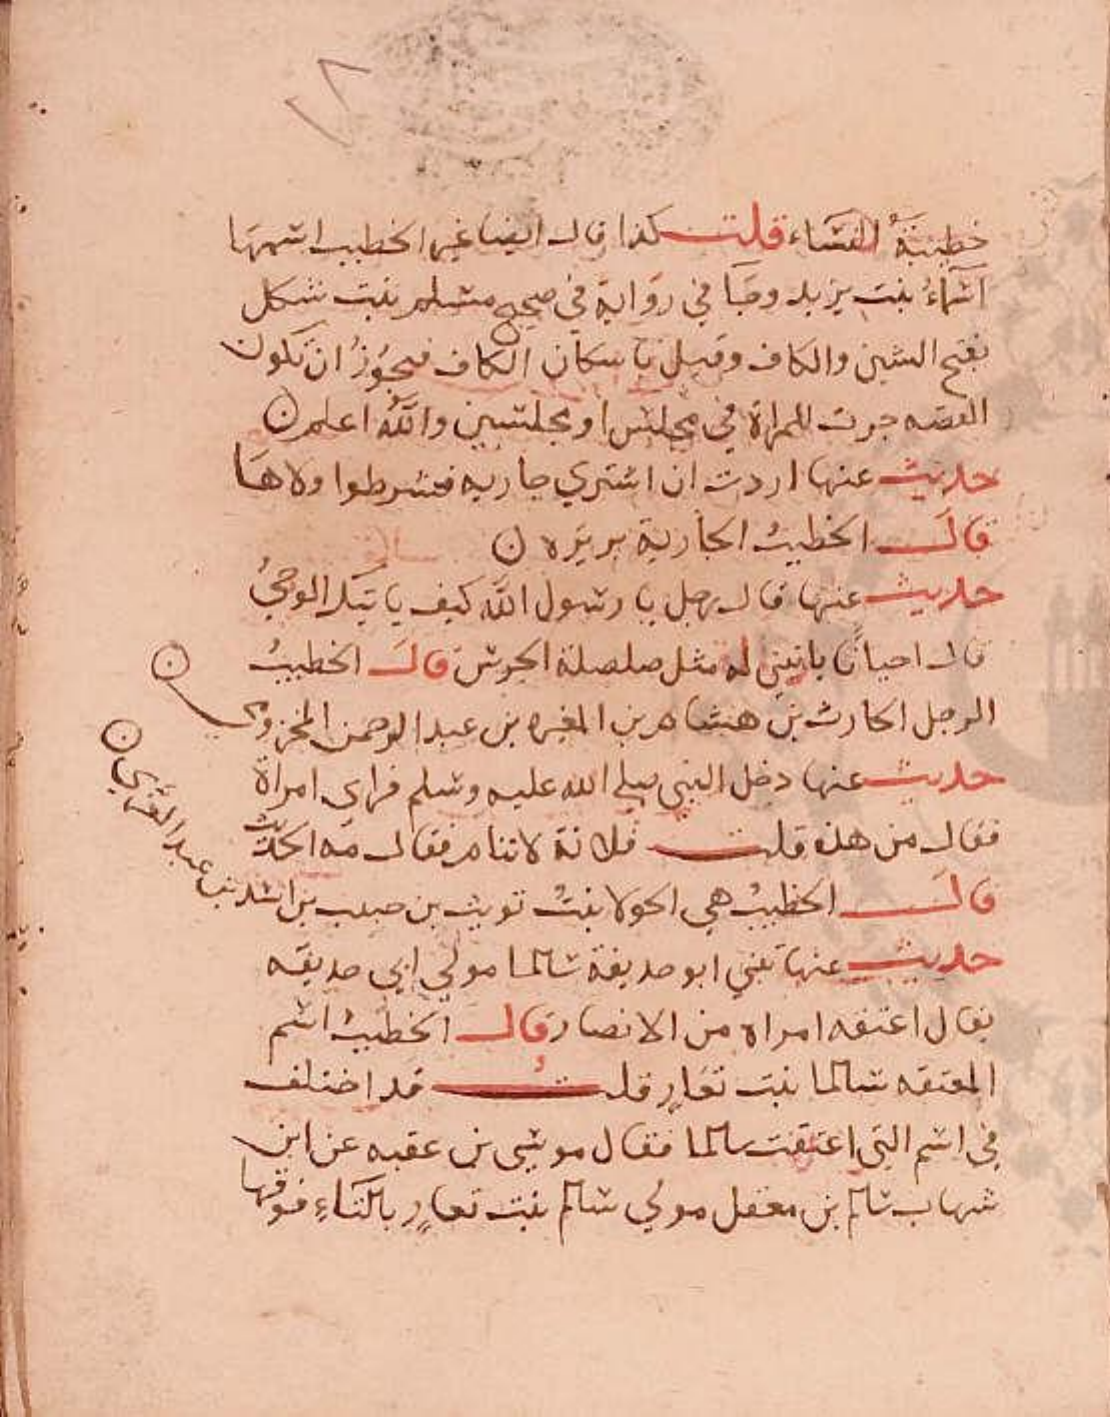 ١٨
خطيبة النساء قلت كذا قال ايضا غير الخطيب اسمها
اسماء بنت يزيد وجا في رواية في صحيح مسلم بنت شكل
بفتح الشين والكاف وقيل باسكان الكاف فيجوز ان تكون
القصه جرت للمراة في مجلس او مجلسين والله اعلم ن
حديث عنها اردت ان اشتري جاريه فشرطوا ولاها
قال الخطيب الجارية بريره ن
حديث عنها قال رجل يا رسول الله كيف ياتيك الوحي
قال احيانا ياتيني له مثل صلصلة الجرس قال الخطيب
الرجل الحارث بن هشام بن المغيره بن عبد الرحمن المخزومي ن
حديث عنها دخل النبي صلى الله عليه وسلم فراى امراة
فقال من هذه قلت فلانة لا تنام فقال مه الحديث
قال الخطيب هي الحولا بنت تويت بن حبيب بن اسد بن عبد العزى ن
حديث عنها تبني ابو حذيفة سالما مولي ابي حذيفه
يقال اعتقه امراه من الانصار قال الخطيب اسم
المعتقه سالما بنت تعار قلت قد اختلف
في اسم التي اعتقت سالما فقال موسي بن عقبه عن ابن
شهاب سالم بن معقل مولي سالم بنت تعار بالتاء فوقها